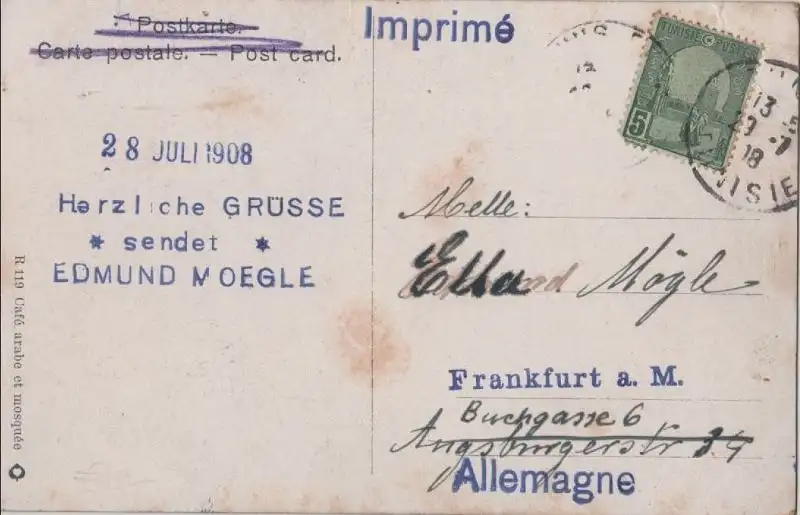 Postkarte.
Carte postale. — Post card.
Imprimé
TUNISIE POSTES
5
13
29 -7
08
28 JULI 1908
Herzliche GRÜSSE
* sendet *
EDMUND MOEGLE
Melle:
Ella Mögle
Frankfurt a. M.
Buchgasse 6
Augsburgerstr 34
Allemagne
R 119 Café arabe et mosquée